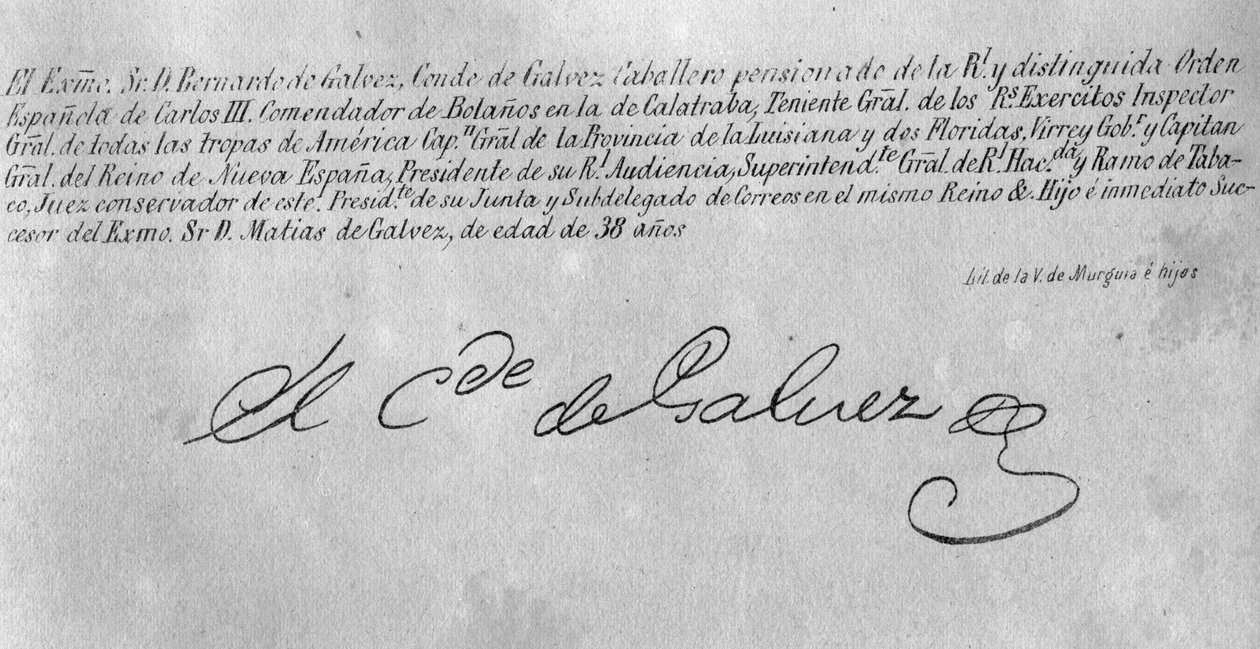 El Exm̃o. Sr. D. Bernardo de Galvez, Conde de Galvez Caballero pensionado de la Rl. y distinguida Orden
Española de Carlos III. Comendador de Bolaños en la de Calatraba, Teniente Grãl. de los Rs. Exercitos Inspector
Grãl. de todas las tropas de América Cap.n Grãl de la Provincia de la Luisiana y dos Floridas, Virrey Gob.r y Capitan
Grãl. del Reino de Nueva España, Presidente de su R.l Audiencia, Superintend.te Grãl. de R.l Hac.da y Ramo de Taba-
co, Juez conservador de este. Presid.te de su Junta y Subdelegado de Correos en el mismo Reino &. Hijo é inmediato Suc-
cesor del Exmo. Sr D. Matias de Galvez, de edad de 38 años
Lit. de la V. de Murguia é hijos
El Cde de Galvez